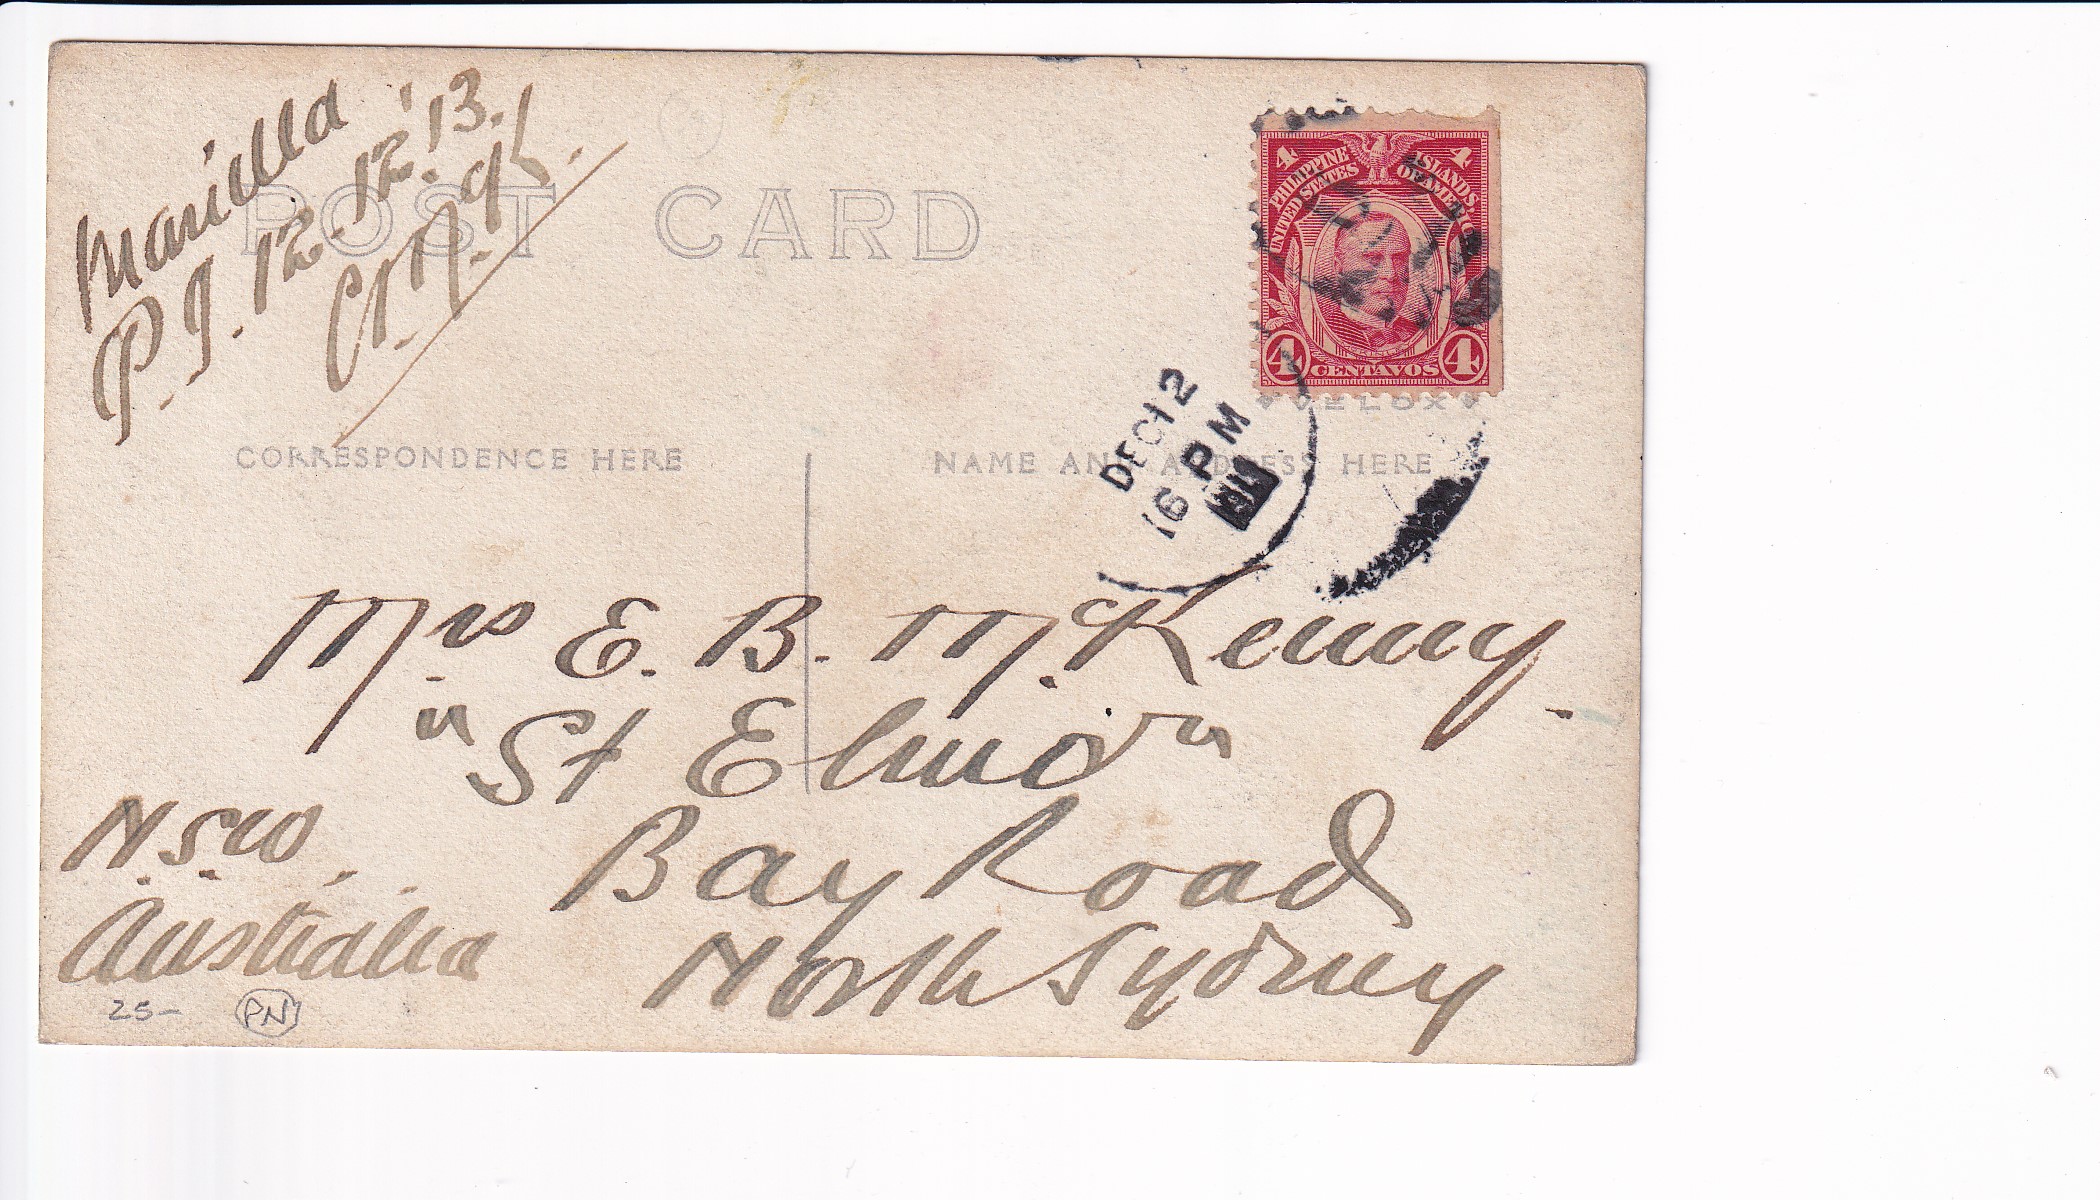 Manilla
P. I. 12. 12. '13.
POST CARD
4 PHILIPPINE ISLANDS, 4
UNITED STATES OF AMERICA
4 CENTAVOS 4
VELOX
DEC 12
6 PM
CORRESPONDENCE HERE
NAME AND ADDRESS HERE
Mrs E. B. McKenny.
"St Elmo"
Bay Road
North Sydney
N.S.W.
Australia
25-
PN